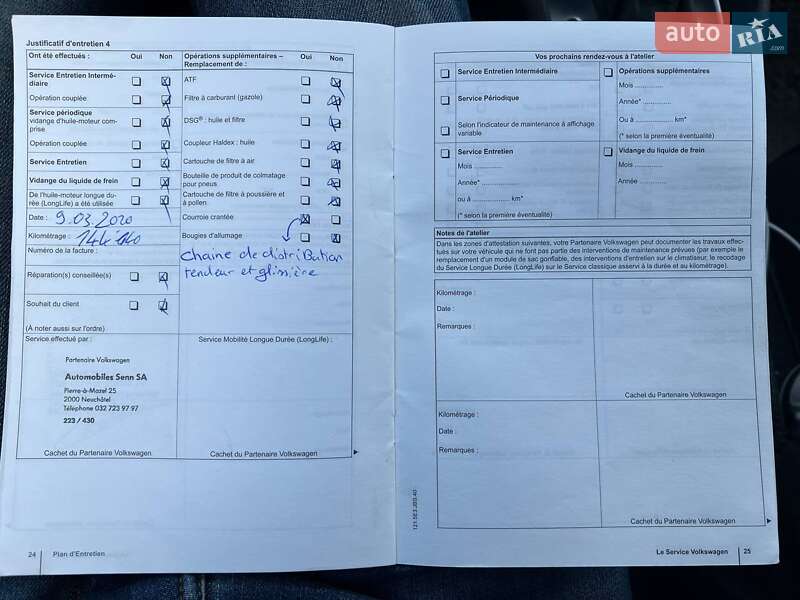 auto RIA .com
Justificatif d'entretien 4
Ont été effectués : Oui Non
Service Entretien Intermé-
diaire
Opération couplée
Service périodique
vidange d'huile-moteur com-
prise
Opération couplée
Service Entretien
Vidange du liquide de frein
De l'huile-moteur longue du-
rée (LongLife) a été utilisée
Date : 9.03.2020
Kilométrage :
Numéro de la facture :
Réparation(s) conseillée(s)
Souhait du client
(À noter aussi sur l'ordre)
Service effectué par :
Partenaire Volkswagen
Automobiles Senn SA
Pierre-à-Mazel 25
2000 Neuchâtel
Téléphone 032 723 97 97
223 / 430
Cachet du Partenaire Volkswagen
Opérations supplémentaires – Oui Non
Remplacement de :
ATF
Filtre à carburant (gazole)
DSG® : huile et filtre
Coupleur Haldex : huile
Cartouche de filtre à air
Bouteille de produit de colmatage
pour pneus
Cartouche de filtre à poussière et
à pollen
Courroie crantée
Bougies d'allumage
chaine de distribution
tendeur et glissière
Service Mobilité Longue Durée (LongLife) :
Cachet du Partenaire Volkswagen
24 Plan d'Entretien
Vos prochains rendez-vous à l'atelier
Service Entretien Intermédiaire
Service Périodique
Selon l'indicateur de maintenance à affichage
variable
Service Entretien
Mois ...............
Année* ...............
ou à ............... km*
(* selon la première éventualité)
Opérations supplémentaires
Mois ...............
Année* ...............
Ou à ............... km*
(* selon la première éventualité)
Vidange du liquide de frein
Mois ...............
Année ...............
Notes de l'atelier
Dans les zones d'attestation suivantes, votre Partenaire Volkswagen peut documenter les travaux effec-
tués sur votre véhicule qui ne font pas partie des interventions de maintenance prévues (par exemple le
remplacement d'un module de sac gonflable, des interventions d'entretien sur le climatiseur, le recodage
du Service Longue Durée (LongLife) sur le Service classique asservi à la durée et au kilométrage).
Kilométrage :
Date :
Remarques :
Cachet du Partenaire Volkswagen
Kilométrage :
Date :
Remarques :
Cachet du Partenaire Volkswagen
121.5E3.JBG.40
Le Service Volkswagen 25